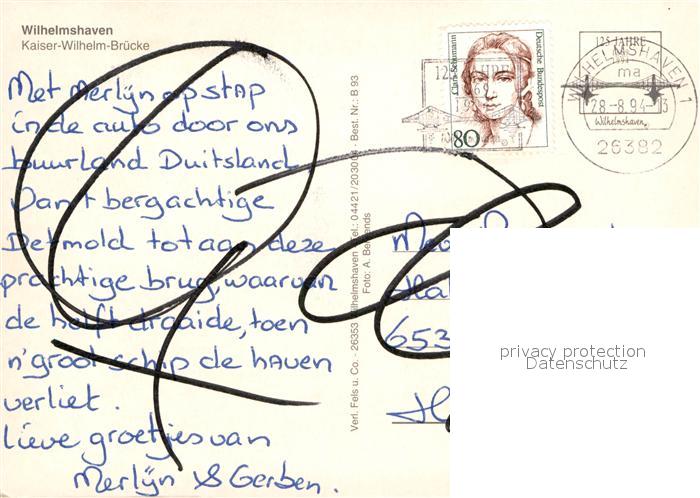 Wilhelmshaven
Kaiser-Wilhelm-Brücke
Met Merlijn op stap
in de auto door ons
buurland Duitsland
Van 't bergachtige
Detmold tot aan deze
prachtige brug, waarvan
de helft draaide, toen
n' groot schip de haven
verliet.
Lieve groetjes van
Merlijn & Gerben.
Verl. Fels u. Co. - 26353 Wilhelmshaven Tel.: 04421/203004 Best. Nr.: B 93
Foto: A.
Clara Schumann
Deutsche Bundespost
80
125 JAHRE
WILHELMSHAVEN 1
ma
28.-8.94-13
Wilhelmshaven
26382
653
privacy protection
Datenschutz